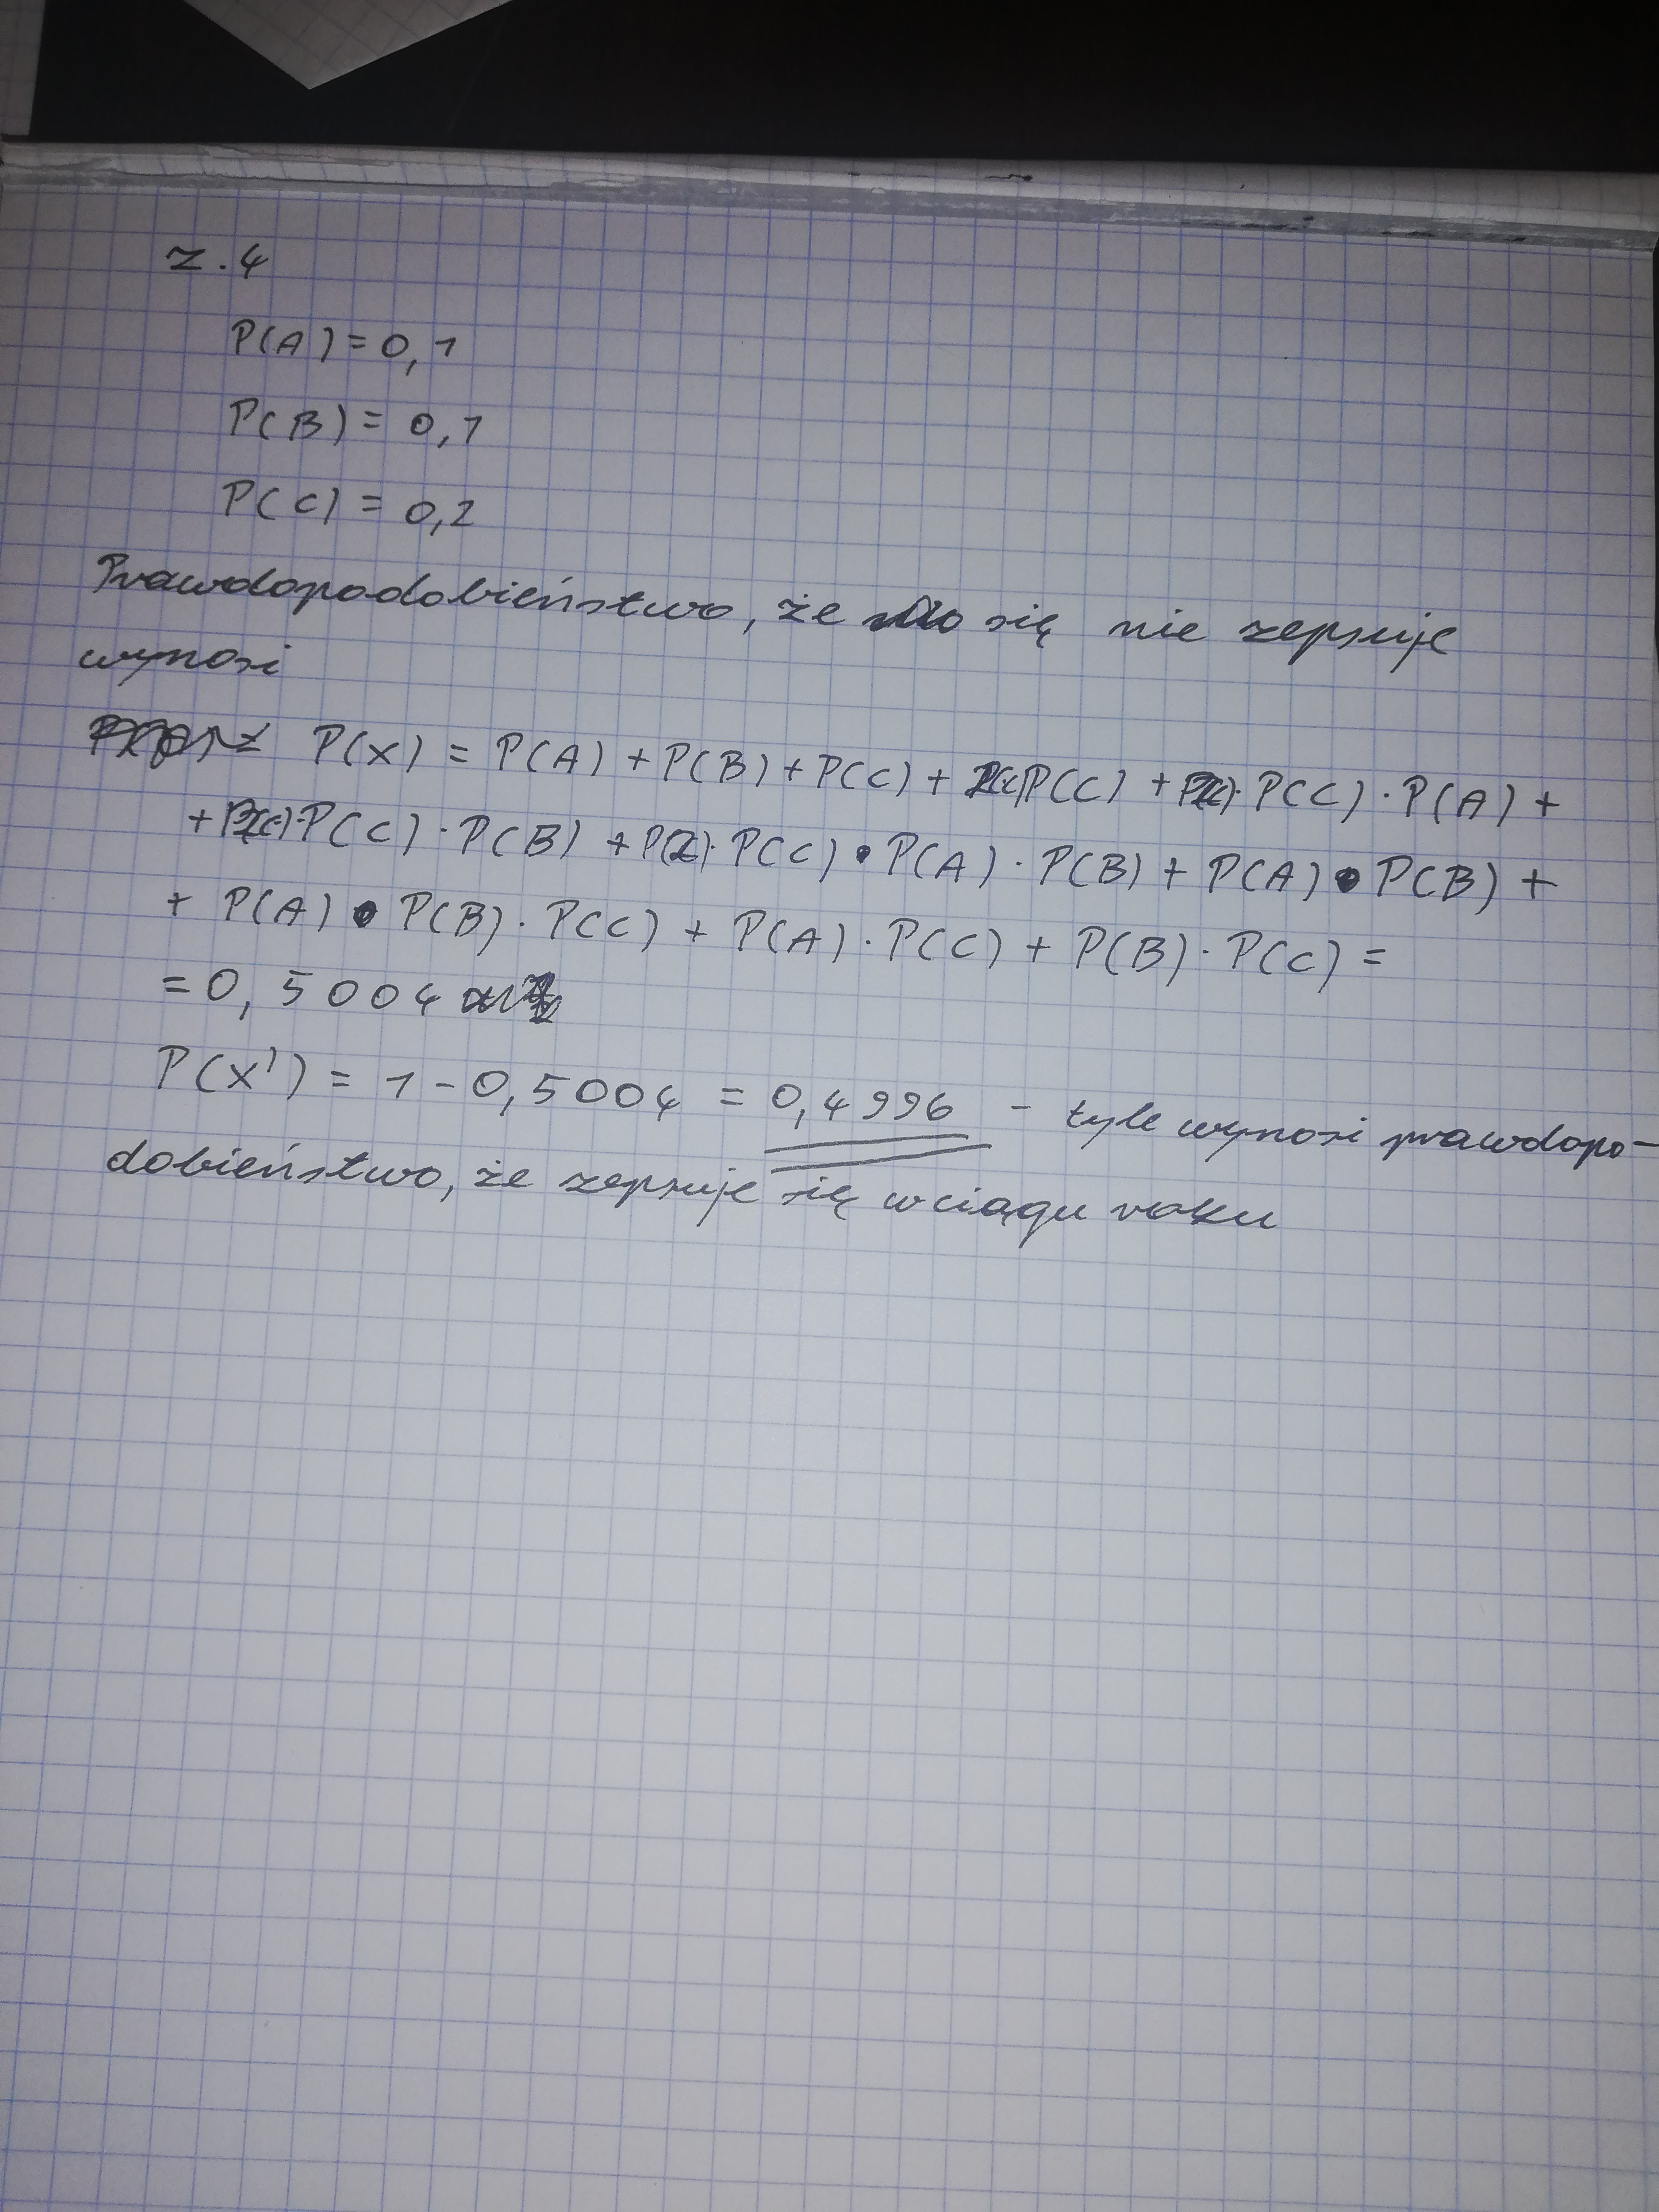 z.4
P(A) = 0,1
P(B) = 0,1
P(C) = 0,2
Prawdopodobieństwo, że się nie zepsuje
wynosi
P(X) = P(A) + P(B) + P(C) + P(C) + P(C) · P(A) +
+ P(C) · P(B) + P(C) · P(A) · P(B) + P(A) · P(B) +
+ P(A) · P(B) · P(C) + P(A) · P(C) + P(B) · P(C) =
= 0,5004
P(X') = 1 - 0,5004 = 0,4996 - tyle wynosi prawdopo-
dobieństwo, że zepsuje się w ciągu roku